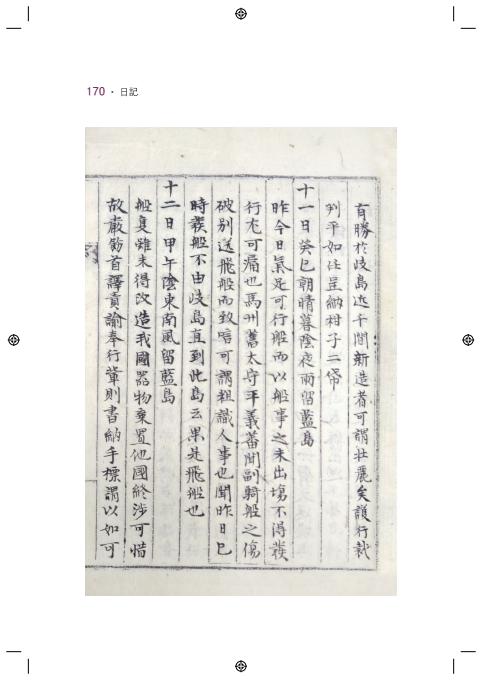 170 · 日記
有勝於歧島近千間新造者可謂壯麗矣護行裁
判平如任呈納柑子二帒
十一日癸巳朝晴暮陰夜雨留藍島
昨今日氣足可行船而以船事之未出場不得發
行尤可痛也馬州舊太守平義蕃聞副騎船之傷
破別送飛船而致唁可謂粗識人事也聞昨日巳
時發船不由歧島直到此島云果是飛船也
十二日甲午陰東南風留藍島
船隻雖未得改造我國器物棄置他國終涉可惜
故嚴飭首譯責諭奉行輩則書納手標謂以如可